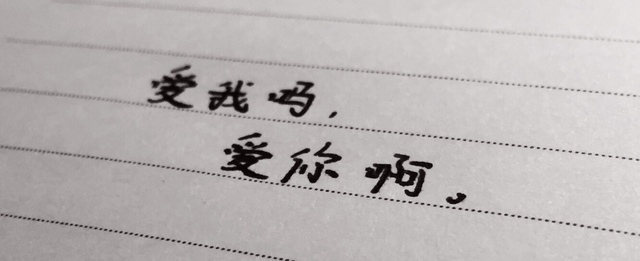 爱我吗,
爱你啊。